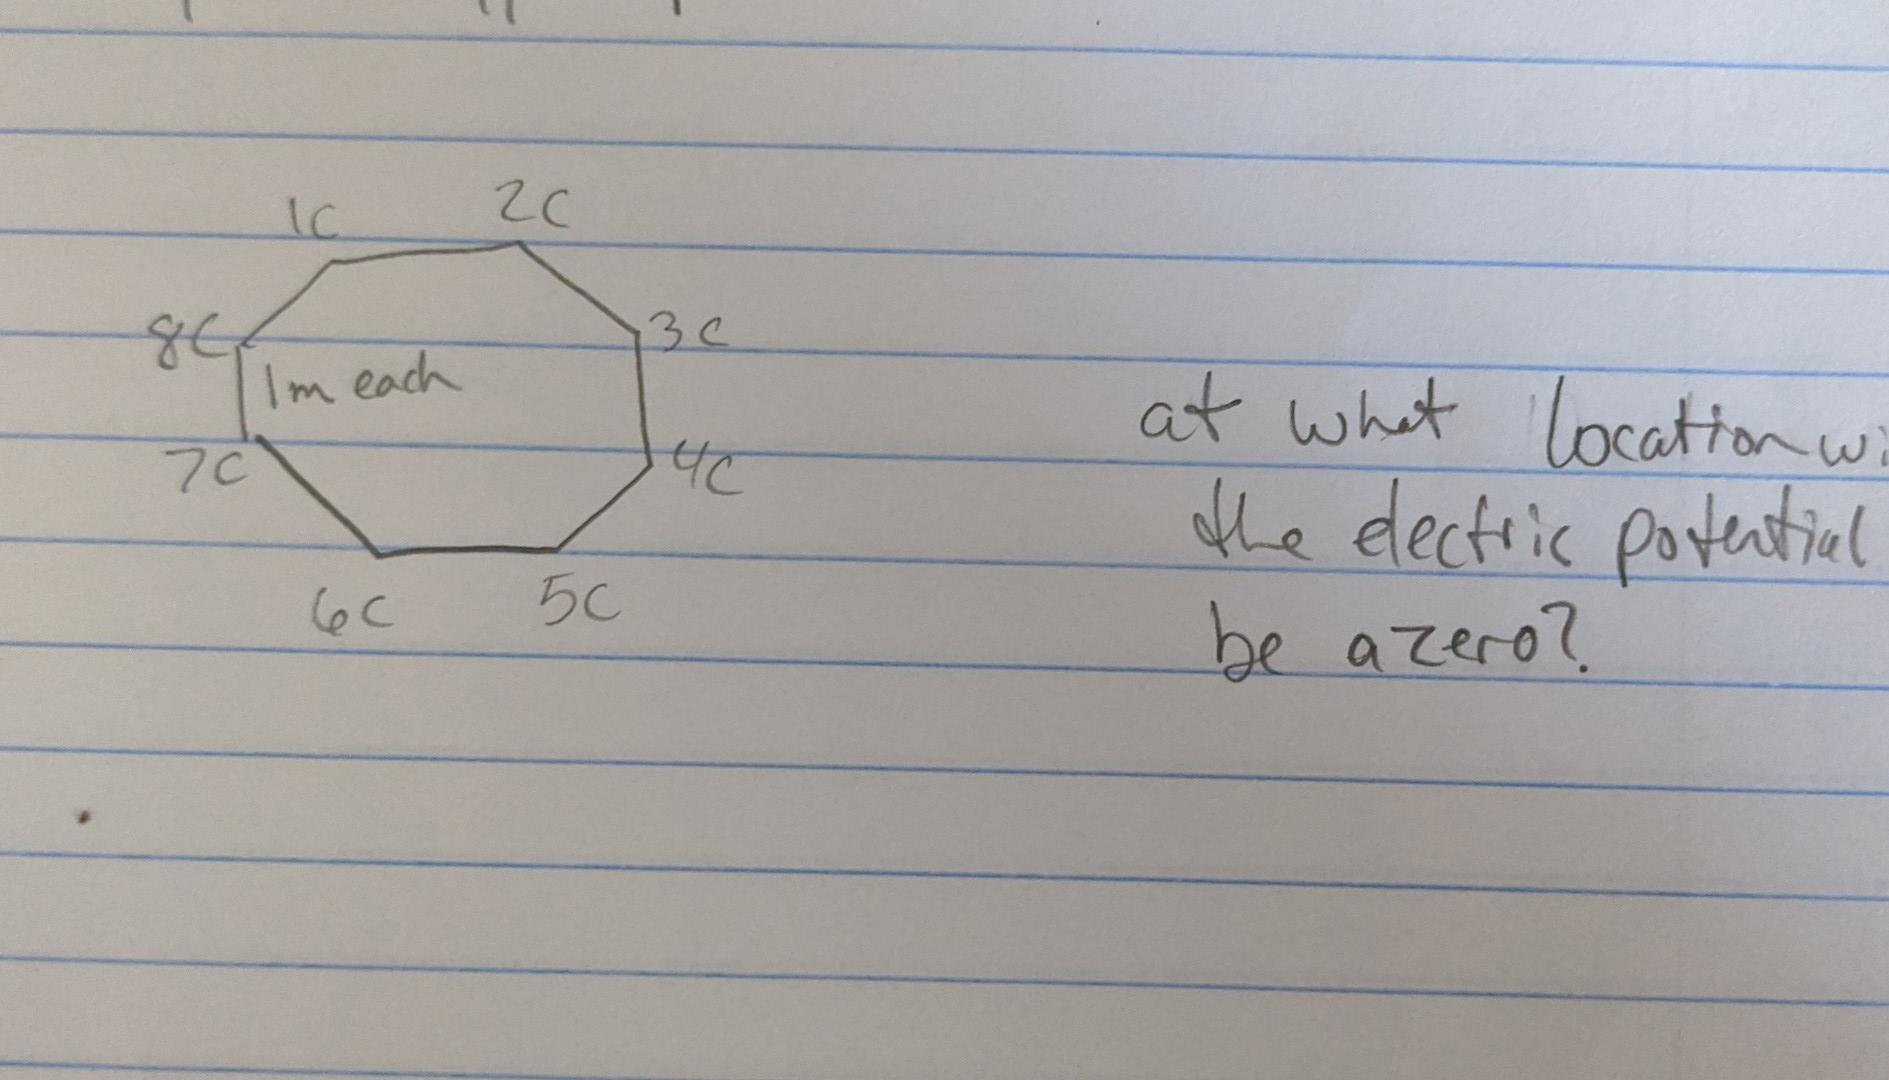 1C 2C
8C 3C
1m each
7C 4C
6C 5C
at what location
the electric potential
be a zero?